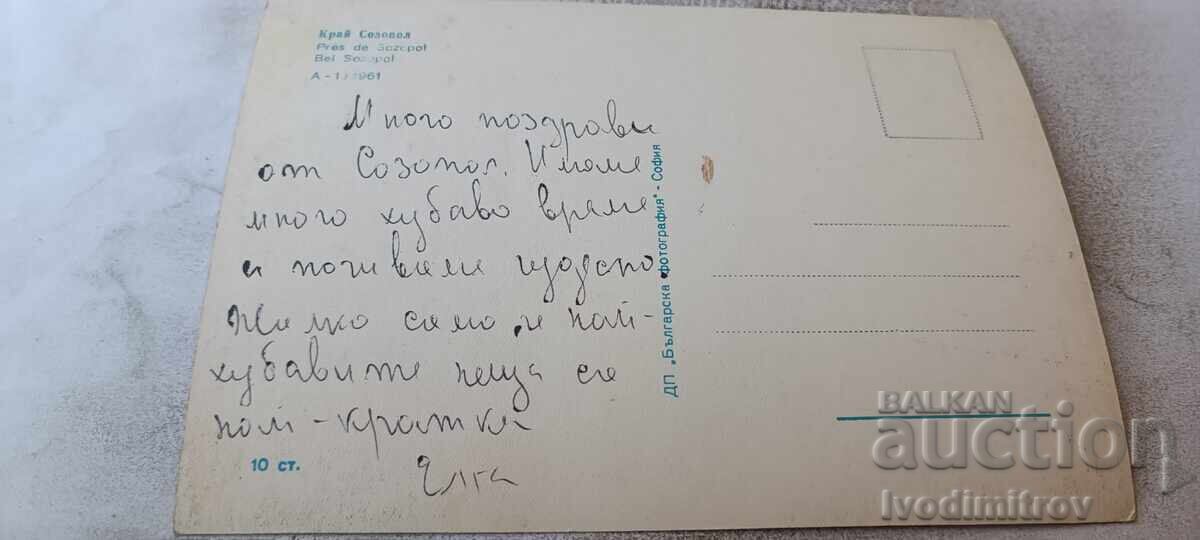 Край Созопол
Près de Sozopol
Bei Sozopol
Много поздрави
от Созопол. Имаме
много хубаво време
и почивам чудесно
Жалко само, че най-
хубавите неща са
най-кратки
10 ст.
ДП „Българска фотография" - София
BALKAN
auction
Ivodimitrov